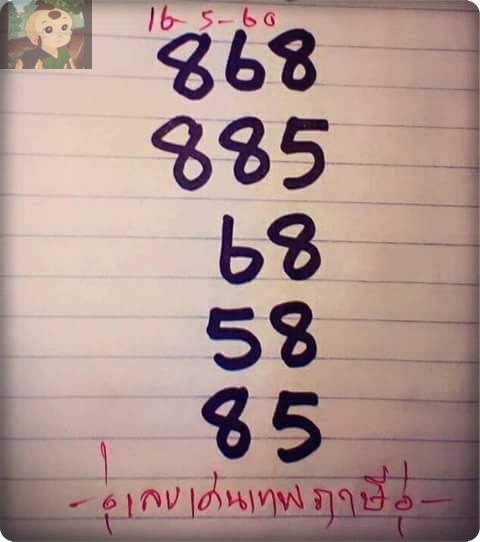 16-5-60
868
885
68
58
85
เลขเด่นเทพฤาษี